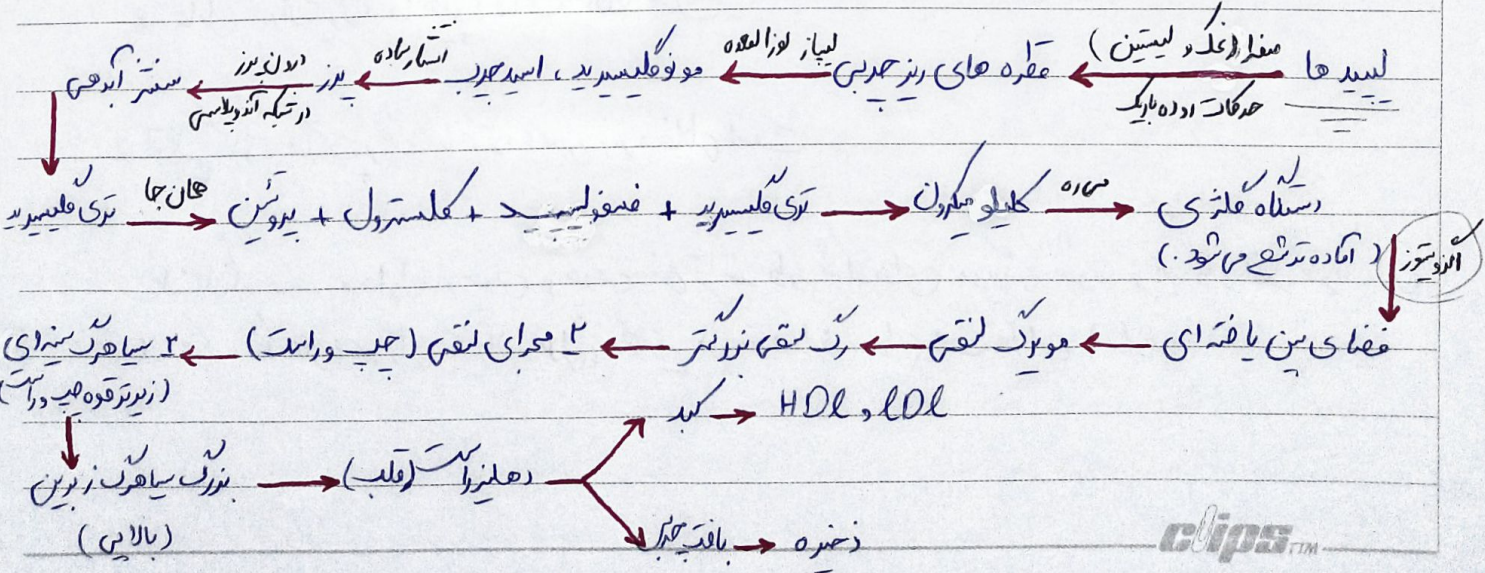 لیپید ها ← صفرا (نمک و لیستین) حرکات روده باریک ← قطره های ریز چربی ← لیپاز لوزالمعده ← مونوگلیسیرید، اسید چرب ← انتشار ساده ← پرز ← درون پرز در شبکه آندوپلاسمی ← سنتز آبدهی
تری گلیسیرید → همان جا → پروتئین + کلسترول + فسفولیپید + تری گلیسیرید → کلیلو میکرون → میره → دستگاه گلژی
(آماده ترشح می شود.)
اگزوسیتوز
فضای بین یاخته ای ← مویرگ لنفی ← رگ لنفی بزرگتر ← ۲ مجرای لنفی (چپ و راست) ← ۲ سیاهرگ سینه ای
(زیر ترقوه چپ و راست)
کبد → HDL و LDL
بزرگ سیاهرگ زبرین → دهلیز راست (قلب)
(بالایی)
بافت چربی → ذخیره
clips TM